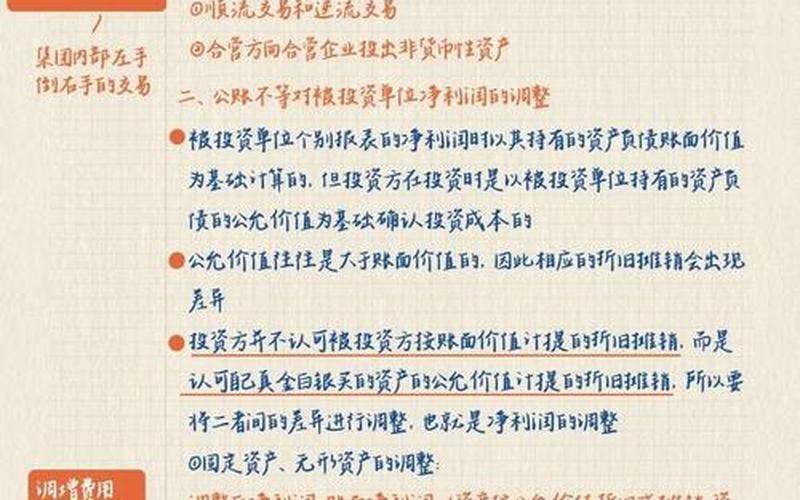 ①顺流交易和逆流交易
集团内部左手
②合营方向合营企业投出非货币性资产
倒右手的交易
二、公账不等对被投资单位净利润的调整
被投资单位个别报表的净利润时以其持有的资产负债账面价值
为基础计算的,但投资方在投资时是以被投资单位持有的资产负
债的公允价值为基础确认投资成本的
公允价值往往是大于账面价值的,因此相应的折旧摊销会出现
差异
投资方并不认可被投资方按账面价值计提的折旧摊销,而是
认可自己真金白银买的资产的公允价值计提的折旧摊销,所以要
将二者间的差异进行调整,也就是净利润的调整
①固定资产、无形资产的调整:
调增费用